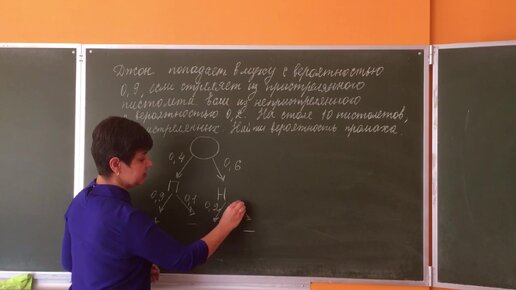 Джон попадает в муху с вероятностью
0,9, если стреляет из пристрелянного
пистолета. Если из непристрелянного
вероятностью 0,2. На столе 10 пистолетов,
Найти вероятность промаха.
0,4 0,6
П Н
0,9 0,1 0,2